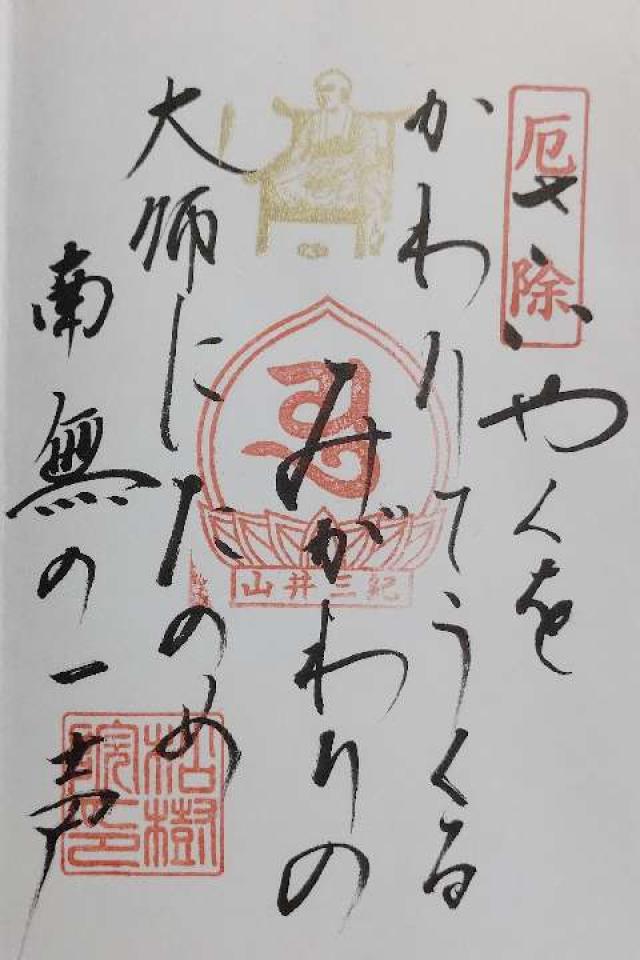 厄除
さいやくを
かわりてうくる
みがわりの
大師にたのめ
南無の一声
紀三井山
枯樹
院印